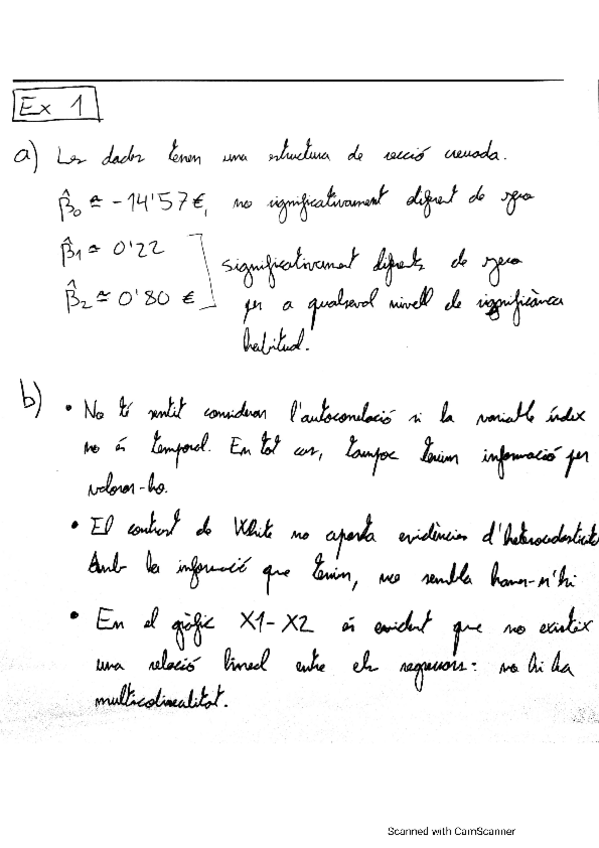 Ex 1
a) Les dades tenen una estructura de secció creuada.
β̂₀ ≃ -14'57 €, no significativament diferent de zero
β̂₁ ≃ 0'22
significativament diferents de zero
β̂₂ ≃ 0'80 €
per a qualsevol nivell de significància
habitual.
b) • No té sentit considerar l'autocorrelació si la variable índex
no és temporal. En tot cas, tampoc tenim informació per
valorar-ho.
• El contrast de White no aporta evidències d'heterocedasticitat
Amb la informació que tenim, no sembla haver-n'hi
• En el gràfic X1-X2 és evident que no existeix
una relació lineal entre els regressors: no hi ha
multicolinealitat.
Scanned with CamScanner